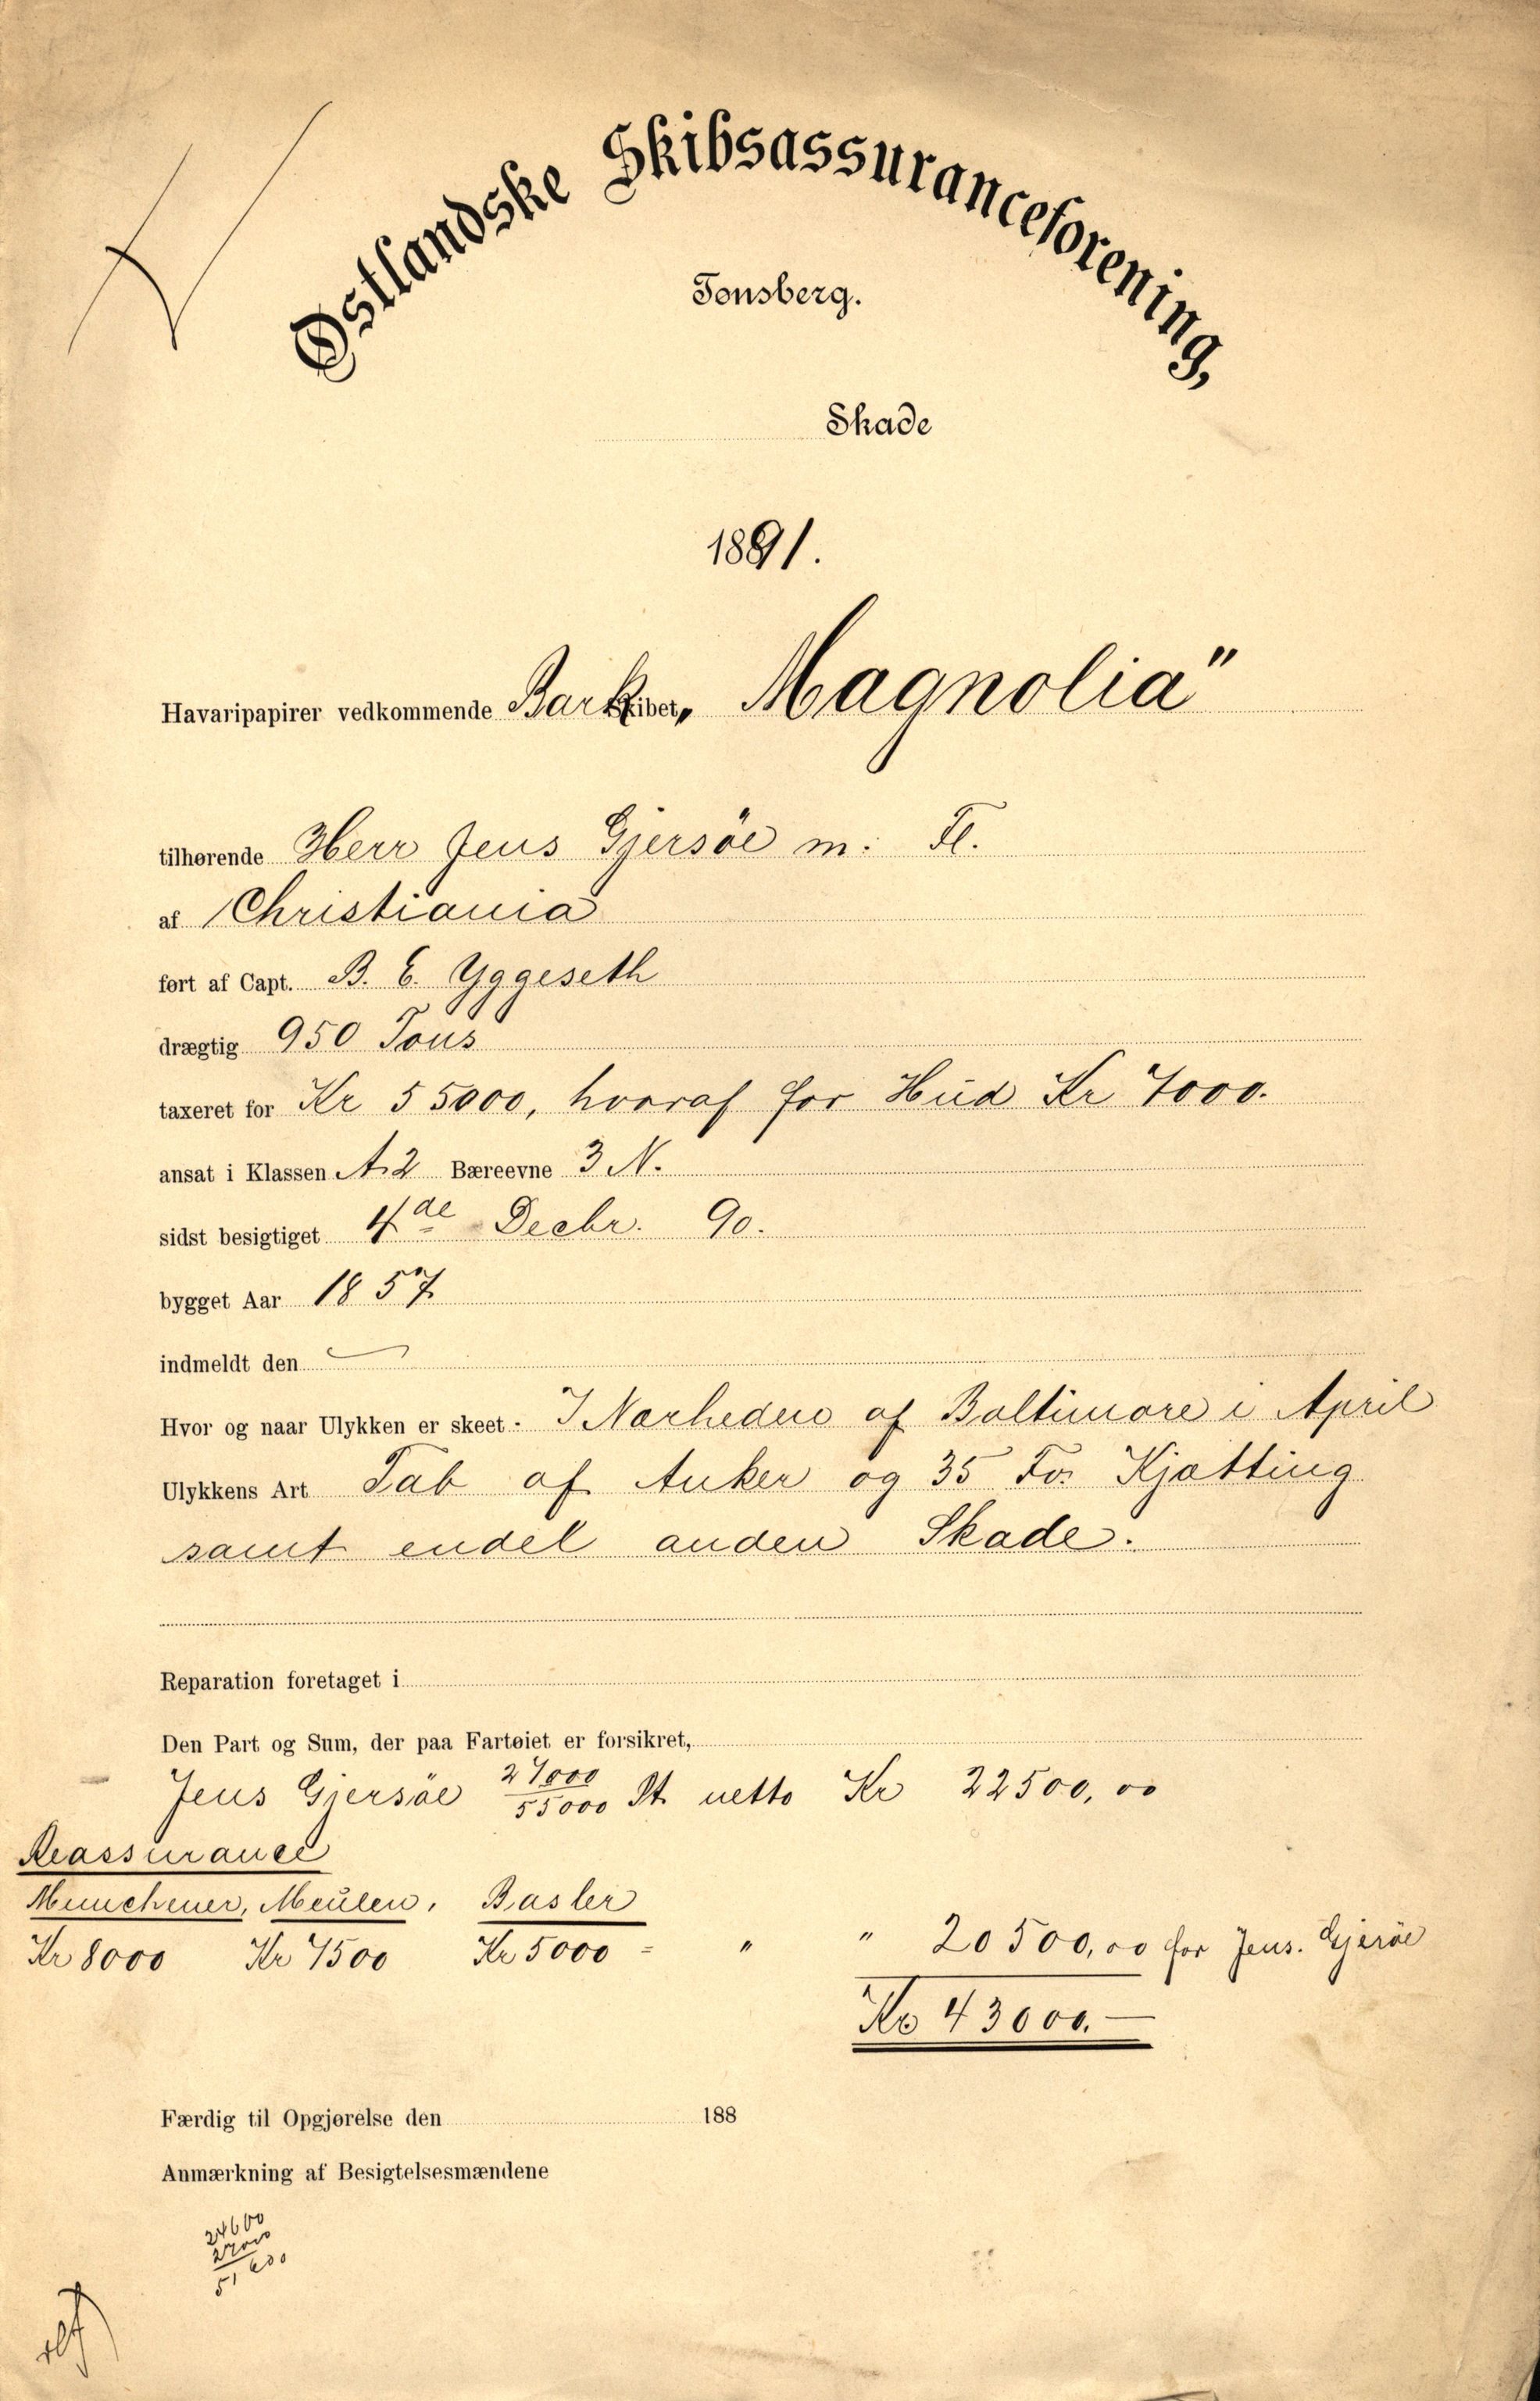 Østlandske Skibsassuranceforening,
Tønsberg.
Skade
1891.
Havaripapirer vedkommende Barkskibet, „Magnolia"
tilhørende Herr Jens Gjersöe m: Fl.
af Christiania
ført af Capt. B. E. Yggeseth
drægtig 950 Tons
taxeret for Kr 55000, hvoraf for Hud Kr 7000.
ansat i Klassen A2 Bæreevne 3 N.
sidst besigtiget 4de Decbr. 90.
bygget Aar 1857
indmeldt den —
Hvor og naar Ulykken er skeet: I Nærheden af Baltimore i April
Ulykkens Art Tab af Anker og 35 Fv. Kjætting
samt endel anden Skade.
Reparation foretaget i
Den Part og Sum, der paa Fartøiet er forsikret,
Jens Gjersöe 27000/55000 Pt. netto Kr 22500,00
Reassurance
Münchener, Meülen, Basler
Kr 8000 Kr 7500 Kr 5000 = " " 20500,00 for Jens. Gjersöe
Kr 43000.—
Færdig til Opgjørelse den 188
Anmærkning af Besigtelsesmændene
24600
27000
51600